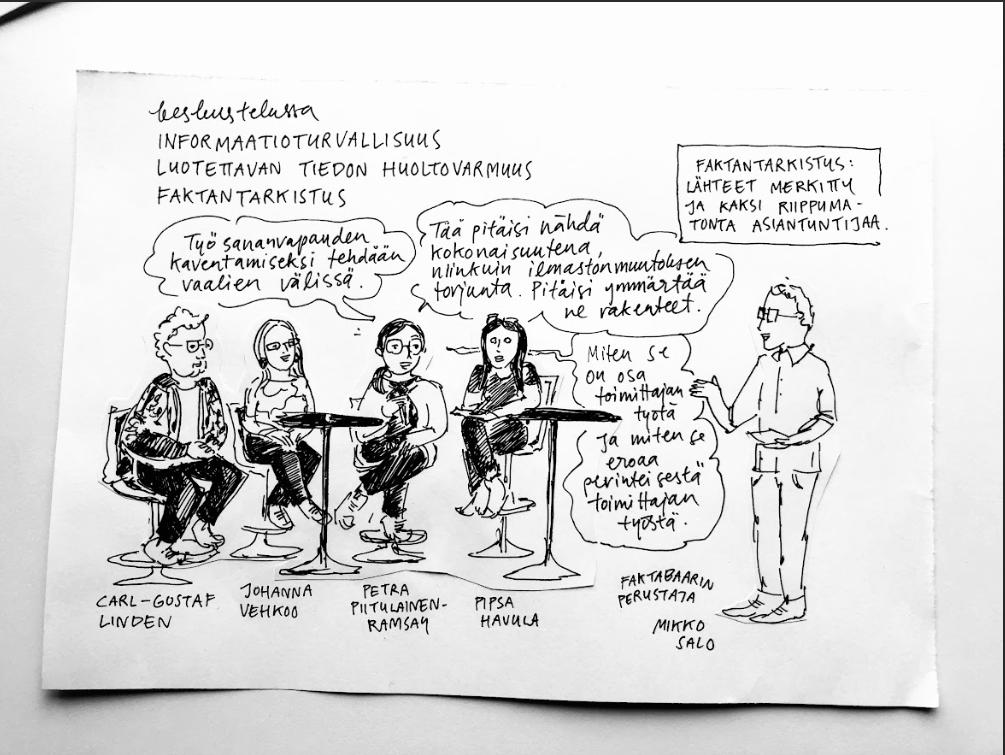 keskustelussa
INFORMAATIOTURVALLISUUS
LUOTETTAVAN TIEDON HUOLTOVARMUUS
FAKTANTARKISTUS
FAKTANTARKISTUS:
LÄHTEET MERKITTY
JA KAKSI RIIPPUMA-
TONTA ASIANTUNTIJAA.
Työ sananvapauden
kaventamiseksi tehdään
vaalien välissä.
Tää pitäisi nähdä
kokonaisuutena,
niinkuin ilmastonmuutoksen
torjunta. Pitäisi ymmärtää
ne rakenteet.
Miten se
on osa
toimittajan
työtä
ja miten se
eroaa
perinteisestä
toimittajan
työstä.
CARL-GUSTAF
LINDEN
JOHANNA
VEHKOO
PETRA
PIITULAINEN-
RAMSAY
PIPSA
HAVULA
FAKTABAARIN
PERUSTAJA
MIKKO
SALO